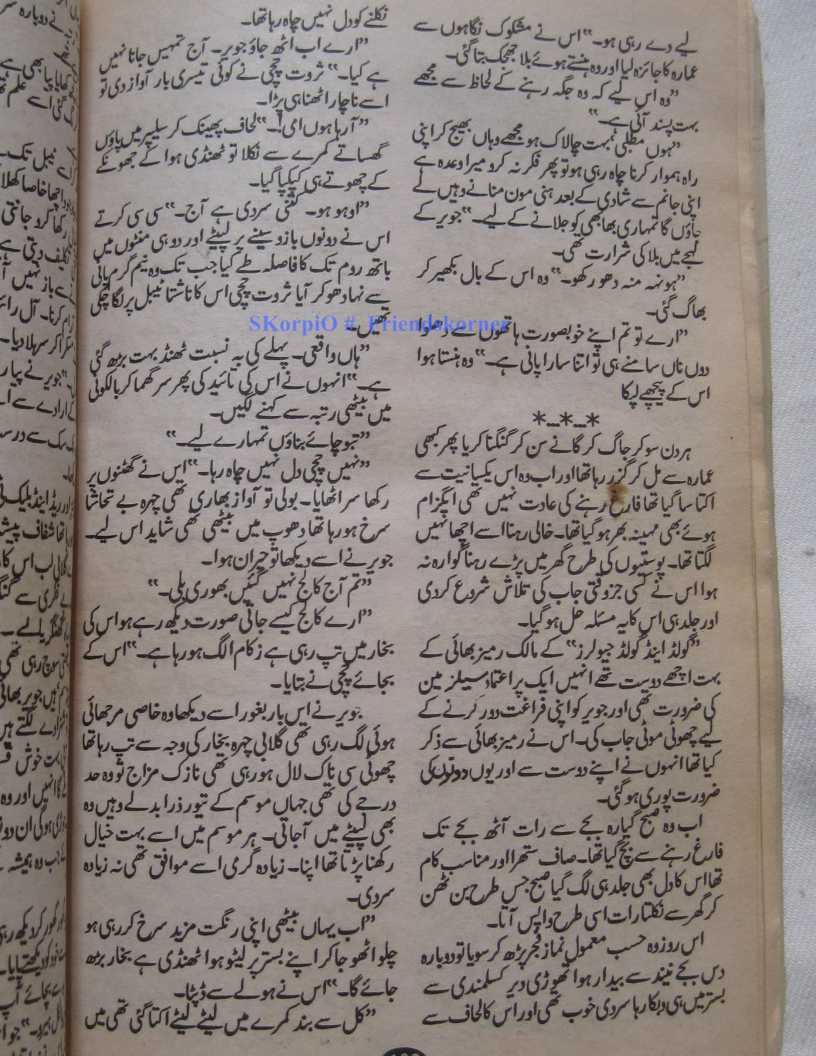 لیے دے رہی ہو۔“ اس نے مشکوک نگاہوں سے
عمارہ کا جائزہ لیا اور وہ ہنستے ہوئے بلا جھجک بتا گئی۔
”وہ اس لیے کہ وہ جگہ رہنے کے لحاظ سے مجھے
بہت پسند آئی ہے۔“
”ہوں مطلبی بہت چالاک ہو مجھے وہاں بھیج کر اپنی
راہ ہموار کرنا چاہ رہی ہو تو پھر فکر نہ کرو میرا وعدہ ہے
اپنی جانم سے شادی کے بعد ہنی مون منانے وہیں لے
جاؤں گا تمہاری بھابھی کو جلانے کے لیے۔“ جویر کے
لہجے میں بلا کی شرارت تھی۔
”ہونہہ منہ دھو رکھو۔“ وہ اس کے بال بکھیر کر
بھاگ گئی۔
”ارے تو تم اپنے خوبصورت ہاتھوں سے دھلوا
دوں ناں سامنے ہی تو اتنا سارا پانی ہے۔“ وہ ہنستا ہوا
اس کے پیچھے لپکا
*_*_*
ہر دن سو کر جاگ کر گانے سن کر گنگنا کر یا پھر کبھی
عمارہ سے مل کر گزر رہا تھا اور اب وہ اس یکسانیت سے
اکتا سا گیا تھا فارغ رہنے کی عادت نہیں تھی ایگزام
ہوئے بھی مہینہ بھر ہو گیا تھا۔ خالی رہنا اسے اچھا نہیں
لگتا تھا۔ پوستیوں کی طرح گھر میں پڑے رہنا گوارہ نہ
ہوا اس نے کسی جزوقتی جاب کی تلاش شروع کر دی
اور جلد ہی اس کا یہ مسئلہ حل ہو گیا۔
”گولڈ اینڈ گولڈ جیولرز“ کے مالک رمیز بھائی کے
بہت اچھے دوست تھے انہیں ایک پر اعتماد سیلز مین
کی ضرورت تھی اور جویر کو اپنی فراغت دور کرنے کے
لیے چھوٹی موٹی جاب کی۔ اس نے رمیز بھائی سے ذکر
کیا تھا انہوں نے اپنے دوست سے اور یوں دونوں کی
ضرورت پوری ہو گئی۔
اب وہ صبح گیارہ بجے سے رات آٹھ بجے تک
فارغ رہنے سے بچ گیا تھا۔ صاف ستھرا اور مناسب کام
تھا اس کا دل بھی جلد ہی لگ گیا صبح جس طرح بن ٹھن
کر گھر سے نکلتا رات اسی طرح واپس آتا۔
اس روز وہ حسب معمول نماز فجر پڑھ کر سویا تو دوبارہ
دس بجے نیند سے بیدار ہوا تھوڑی دیر کسلمندی سے
بستر میں ہی دبکا رہا سردی خوب تھی اور اس کا لحاف سے
نکلنے کو دل نہیں چاہ رہا تھا۔
”ارے اب اٹھ جاؤ جویر۔ آج تمہیں جانا نہیں
ہے کیا۔“ ثروت چچی نے کوئی تیسری بار آواز دی تو
اسے ناچار اٹھنا ہی پڑا۔
”آرہا ہوں امی!۔“ لحاف پھینک کر سلیپر میں پاؤں
گھساتے کمرے سے نکلا تو ٹھنڈی ہوا کے جھونکے
کے چھوتے ہی کپکپا گیا۔
”اوہو ہو۔ کتنی سردی ہے آج۔“ سی سی کرتے
اس نے دونوں بازو سینے پر لپیٹے اور دو ہی منٹوں میں
باتھ روم تک کا فاصلہ طے کیا جب تک وہ نیم گرم پانی
سے نہا دھو کر آیا ثروت چچی اس کا ناشتا ٹیبل پر لگا چکی
تھیں۔
SKorpiO #_Friendskorner
”ہاں واقعی۔ پہلے کی بہ نسبت ٹھنڈ بہت بڑھ گئی
ہے۔“ انہوں نے اس کی تائید کی پھر سر گھما کر بالکونی
میں بیٹھی رتبہ سے کہنے لگیں۔
”تبو چائے بناؤں تمہارے لیے۔“
”نہیں چچی دل نہیں چاہ رہا۔“ اس نے گھٹنوں پر
رکھا سر اٹھایا۔ بولی تو آواز بھاری تھی چہرہ بے تحاشا
سرخ ہو رہا تھا دھوپ میں بیٹھی تھی شاید اس لیے۔
جویر نے اسے دیکھا تو حیران ہوا۔
”تم آج کالج نہیں گئیں بھوری بلی۔“
”ارے کالج کیسے جاتی صورت دیکھ رہے ہو اس کی
بخار میں تپ رہی ہے زکام الگ ہو رہا ہے۔“ اس کے
بجائے چچی نے بتایا۔
جویر نے اس بار بغور اسے دیکھا وہ خاصی مرجھائی
ہوئی لگ رہی تھی گلابی چہرہ بخار کی وجہ سے تپ رہا تھا
چھوٹی سی ناک لال ہو رہی تھی نازک مزاج تو وہ حد
درجے کی تھی جہاں موسم کے تیور ذرا بدلے وہیں وہ
بھی لپیٹے میں آجاتی۔ ہر موسم میں اسے بہت خیال
رکھنا پڑتا تھا اپنا۔ زیادہ گرمی اسے موافق تھی نہ زیادہ
سردی۔
”اب یہاں بیٹھی اپنی رنگت مزید سرخ کر رہی ہو
چلو اٹھو جا کر اپنے بستر پر لیٹو ہوا ٹھنڈی ہے بخار بڑھ
جائے گا۔“ اس نے ہولے سے ڈپٹا۔
”کل سے بند کمرے میں لیٹے لیٹے اکتا گئی تھی میں